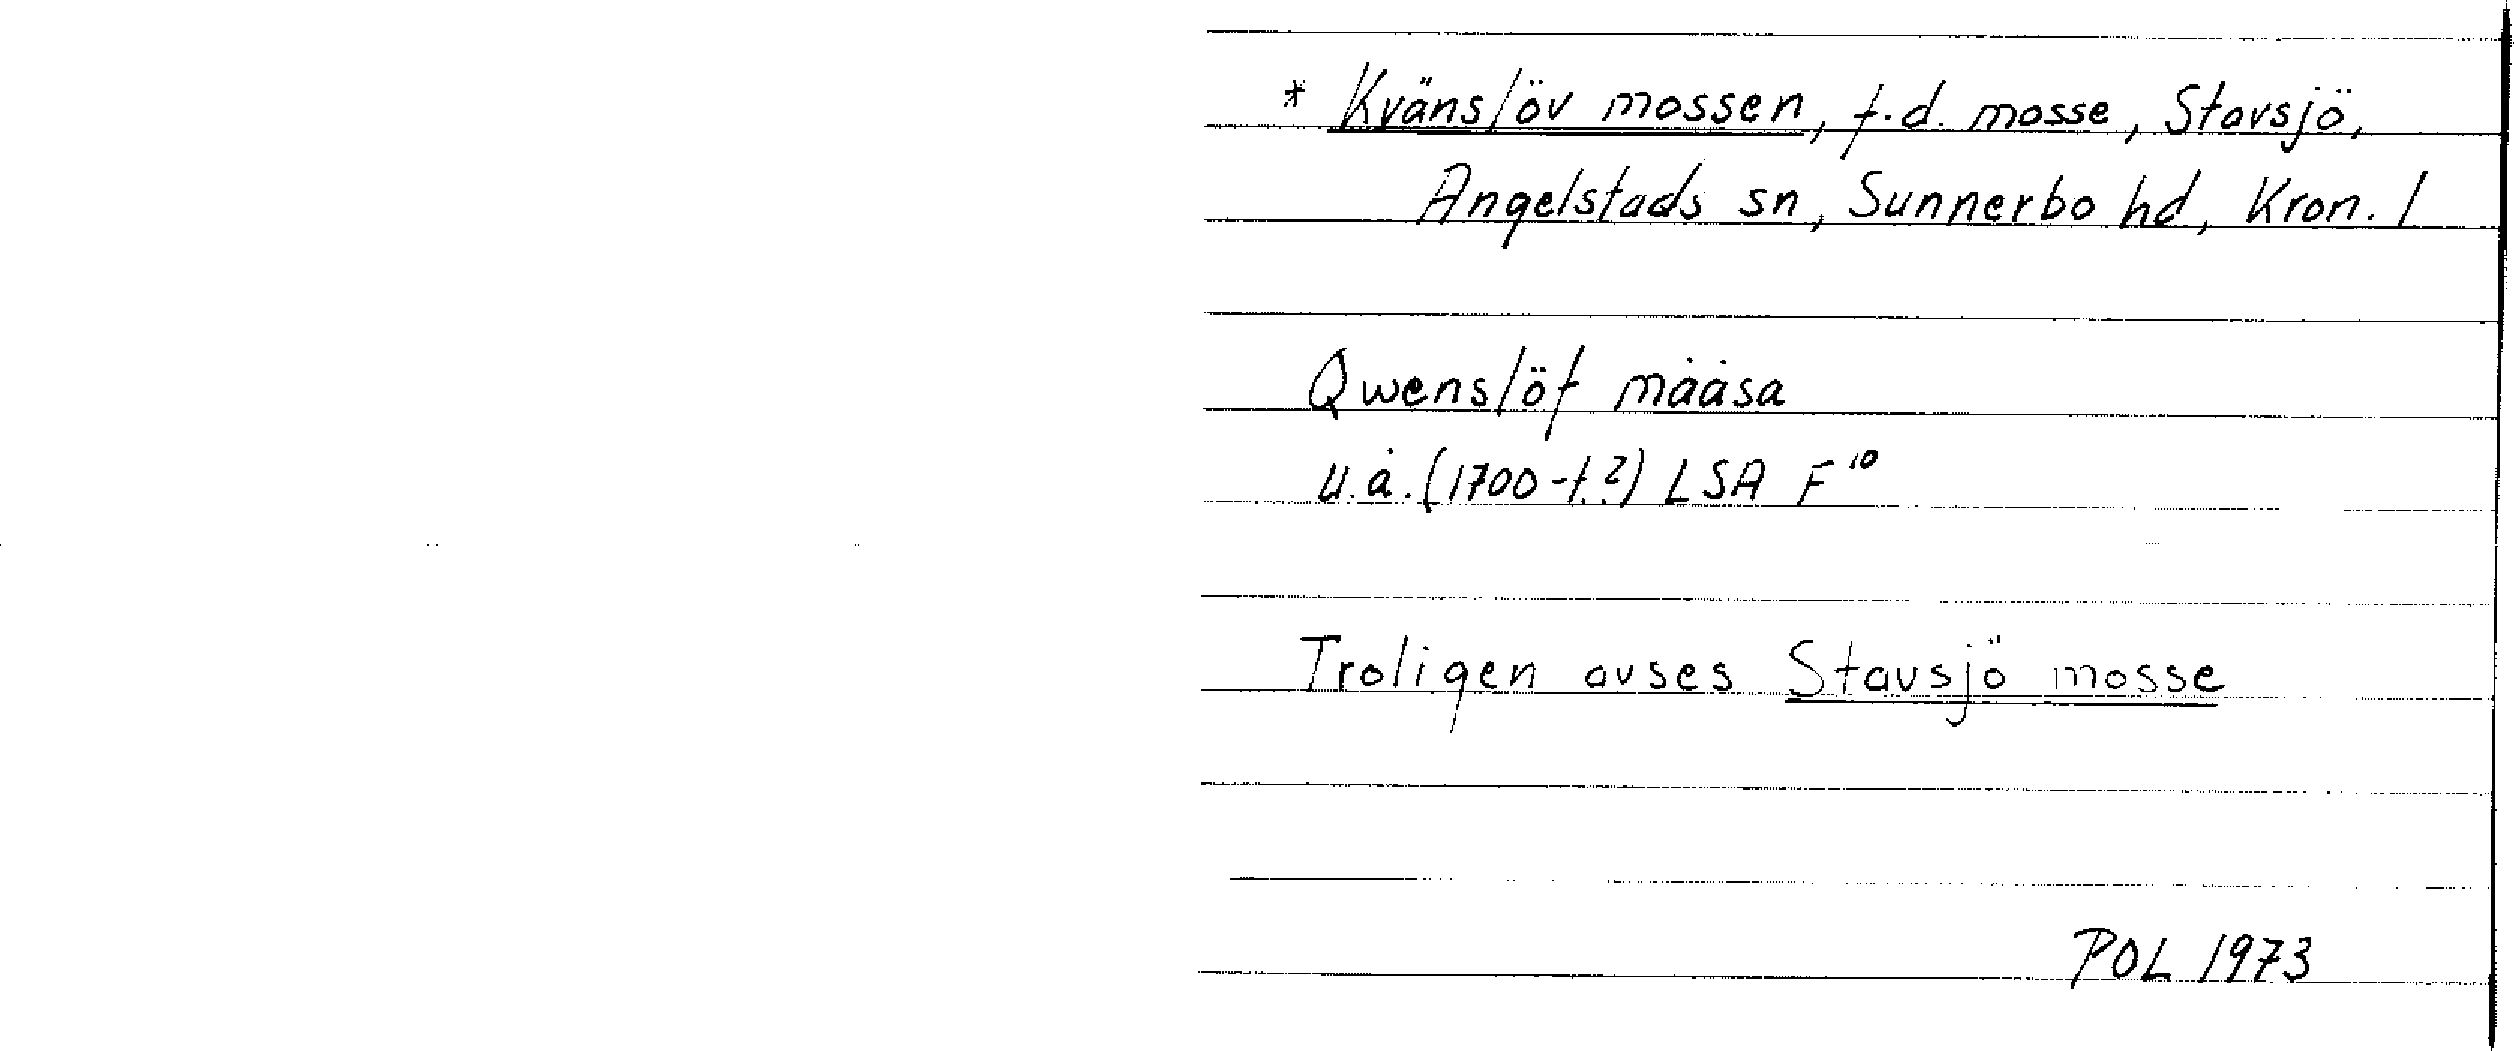 * Kvänslöv mossen, f.d. mosse, Stavsjö,
Angelstads sn, Sunnerbo hd, Kron. l
Qwenslöf mååsa
u.å. (1700-t.?) LSA F¹⁰
Troligen avses Stavsjö mosse
POL 1973